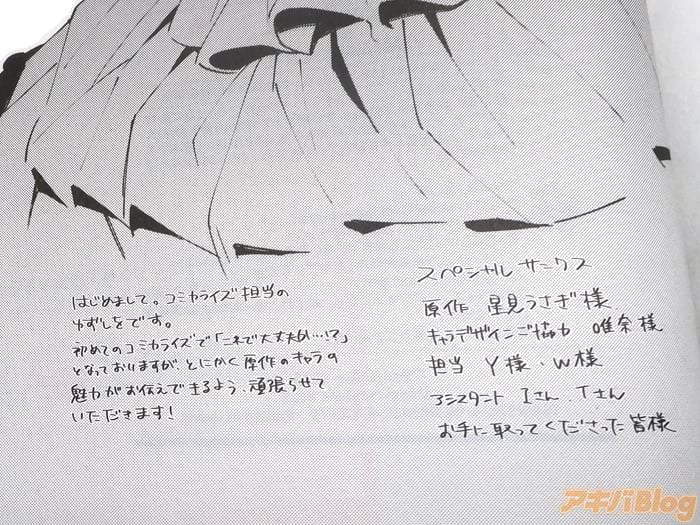 はじめまして。コミカライズ担当の
ゆずしをです。
初めてのコミカライズで「これで大丈夫か…!?」
となっておりますが、とにかく原作のキャラの
魅力がお伝えできるよう、頑張らせて
いただきます!
スペシャルサンクス
原作 星見うさぎ様
キャラデザインご協力 唯奈様
担当 Y様・W様
アシスタント Iさん、Tさん
お手に取ってくださった皆様
アキバBlog